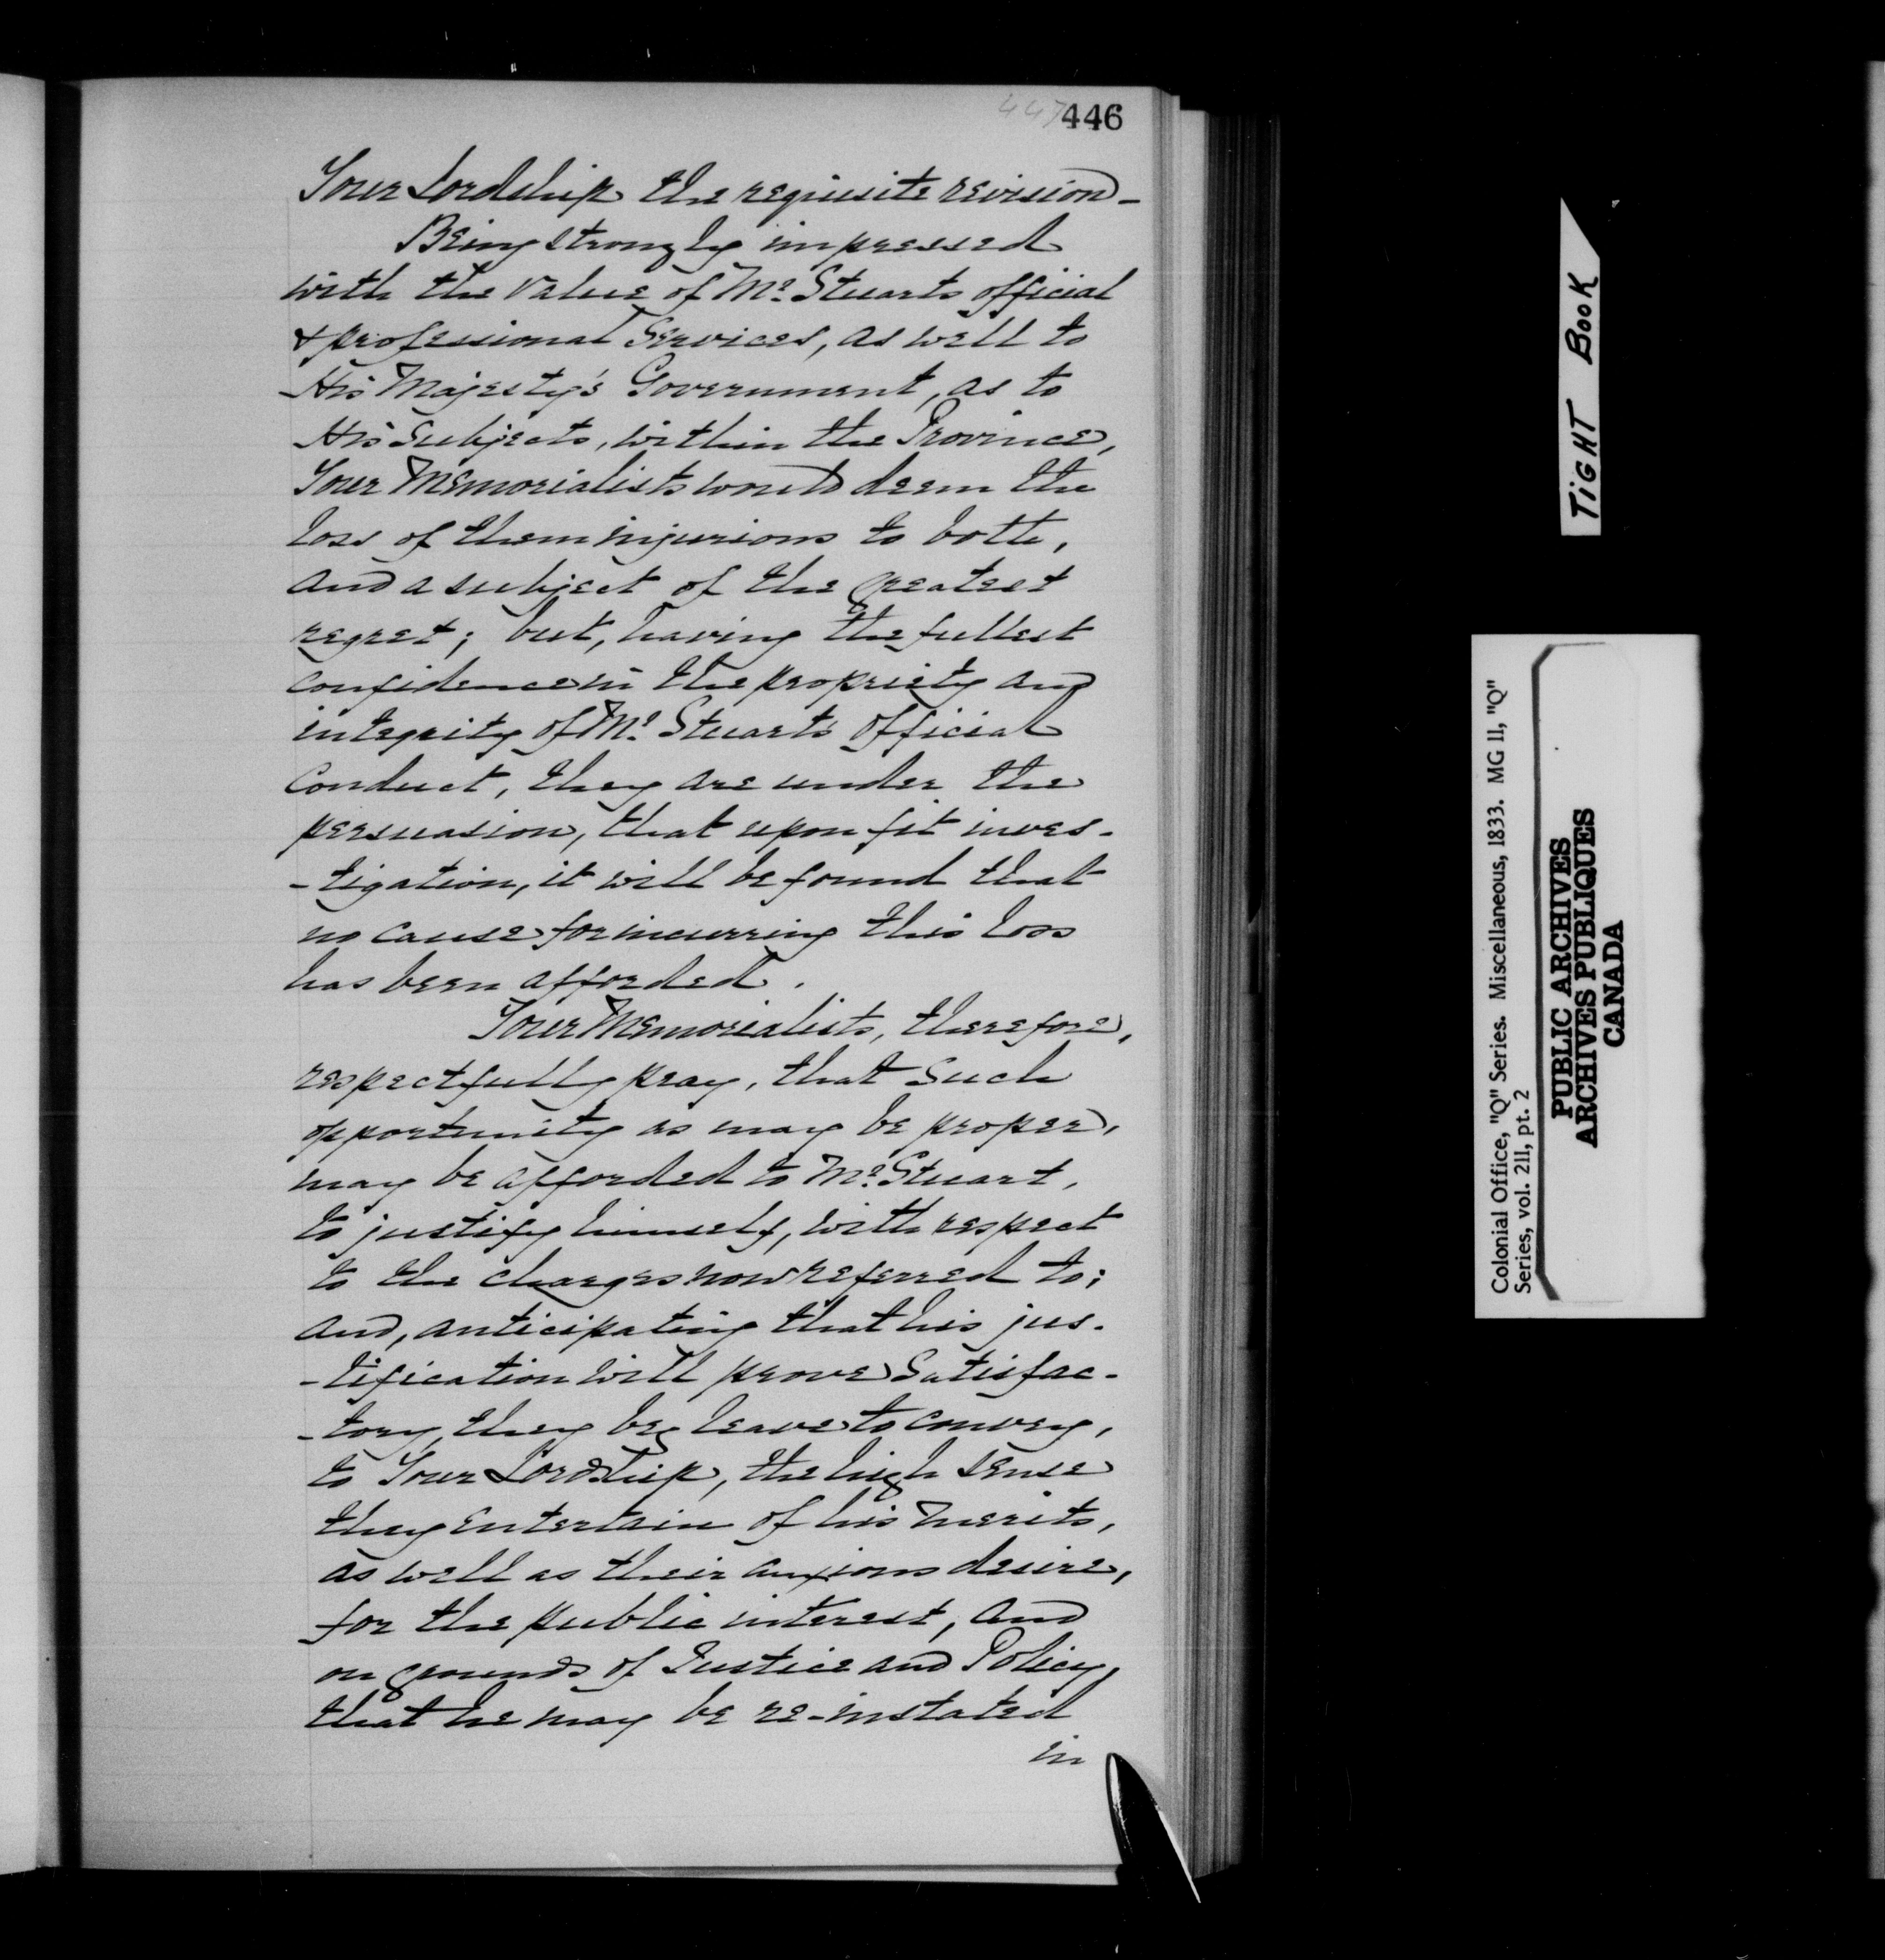 447 446
Your Lordship the requisite revision -
Being strongly impressed
with the value of Mr. Stuarts official
& professional Services, as well to
His Majesty's Government, as to
His Subjects, within the Province,
Your Memorialists would deem the
loss of them injurious to both,
and a subject of the greatest
regret; but, having the fullest
confidence in the propriety and
integrity of Mr. Stuarts Official
Conduct, they are under the
persuasion, that upon fit inves-
-tigation, it will be found that
no cause for incurring this loss
has been afforded.
Your Memorialists, therefore,
respectfully pray, that Such
opportunity as may be proper,
may be afforded to Mr. Stuart,
to justify himself, with respect
to the charges now referred to;
and, anticipating that his jus-
-tification will prove Satisfac-
-tory, they beg leave to convey,
to Your Lordship, the high sense
they entertain of his merits,
as well as their anxious desire,
for the public interest, and
on grounds of Justice and Policy,
that he may be re-instated
in
TIGHT BOOK
Colonial Office, "Q" Series. Miscellaneous, 1833. MG 11, "Q"
Series, vol. 211, pt. 2
PUBLIC ARCHIVES
ARCHIVES PUBLIQUES
CANADA